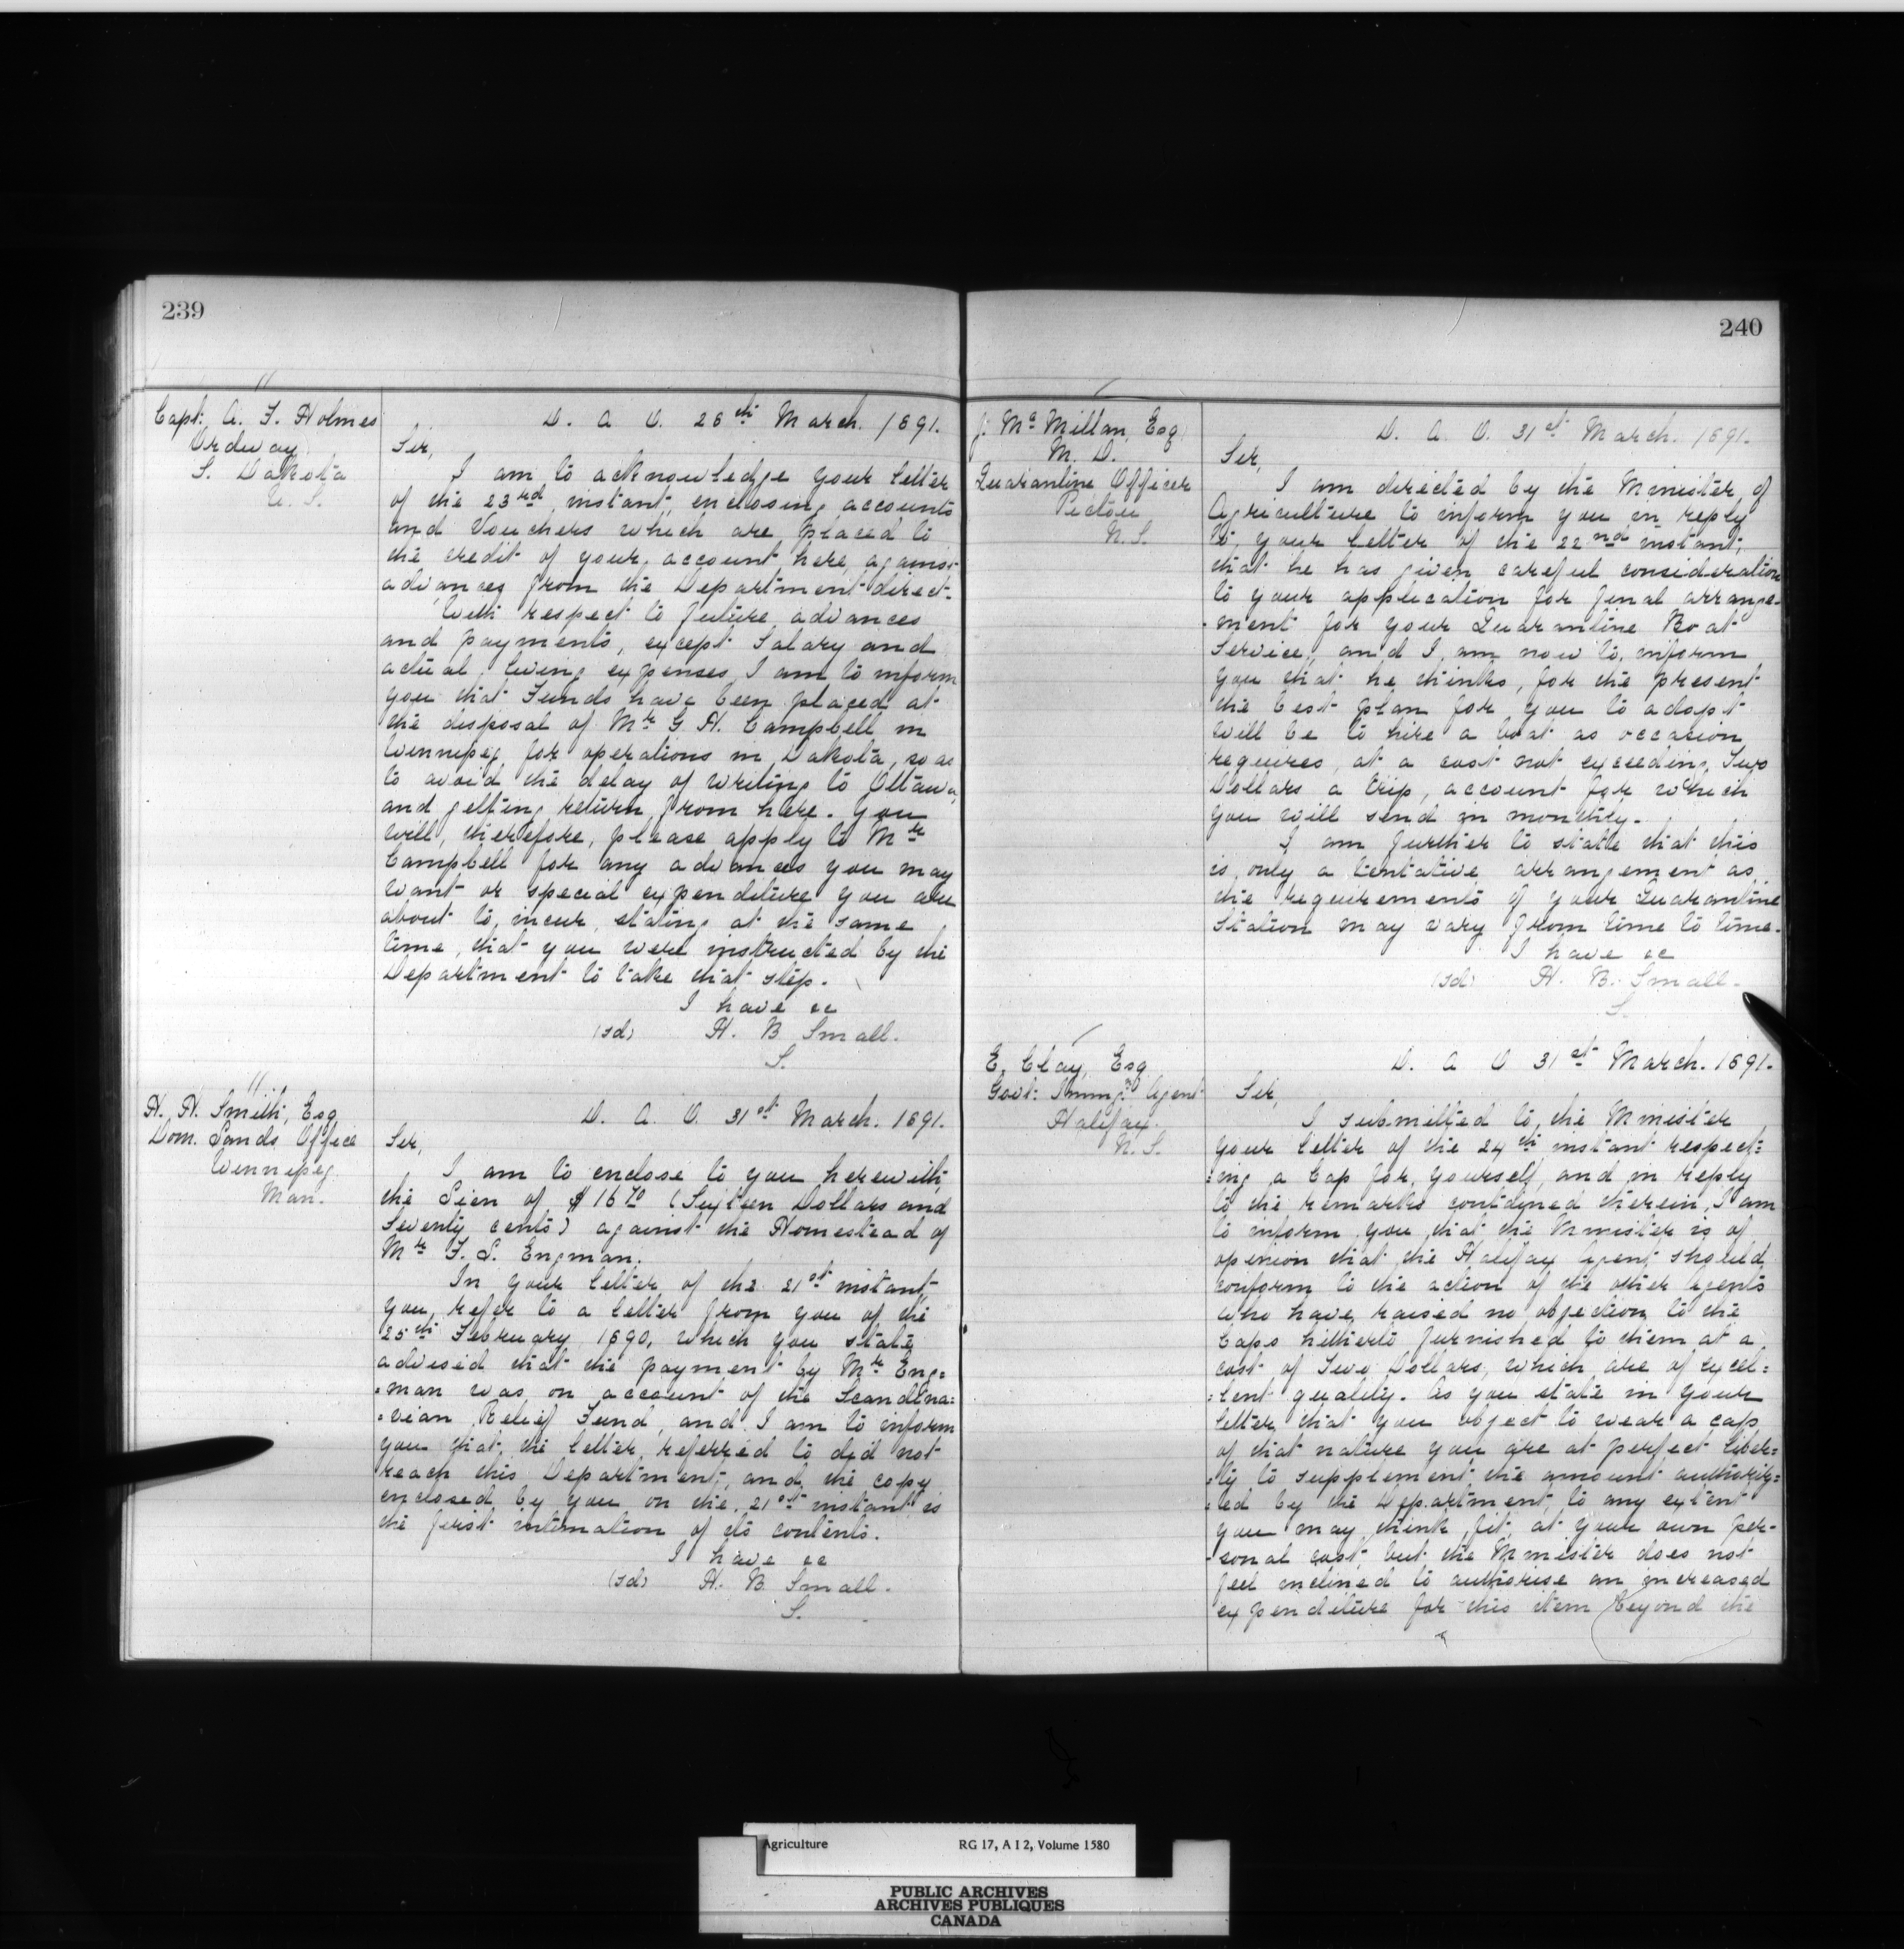 239
Capt: A. F. Holmes
Ordway
S. Dakota
U. S.
D. A. O. 28th March. 1891.
Sir,
I am to acknowledge your letter
of the 23rd instant, enclosing accounts
and Vouchers which are placed to
the credit of your account here, against
advances from the Department direct.
With respect to future advances
and payments, except Salary and
actual living expenses, I am to inform
you that Funds have been placed at
the disposal of Mr G. H. Campbell in
Winnipeg for operations in Dakota, so as
to avoid the delay of writing to Ottawa,
and getting return from here. You
will, therefore, please apply to Mr
Campbell for any advances you may
want or special expenditure you are
about to incur, stating at the same
time, that you were instructed by the
Department to take that step.
I have &c
(sd) H. B Small.
S.
H. H. Smith, Esq
Dom. Lands Office
Winnipeg.
Man.
D. A. O. 31st March. 1891.
Sir,
I am to enclose to you herewith,
the Lien of $16 70 (Sixteen Dollars and
Seventy cents) against the Homestead of
Mr F. L. Engman.
In your letter of the 21st instant,
you refer to a letter from you of the
25th February 1890, which you state
advised that the payment by Mr Eng=
=man was on account of the Scandina=
=vian Relief Fund, and I am to inform
you that the letter referred to did not
reach this Department, and the copy
enclosed by you on the 21st instant is
the first intimation of its contents.
I have &c
(sd) H. B. Small.
S.
240
J. McMillan, Esq
M. D.
Quarantine Officer
Pictou
N.S.
D. A. O. 31st March. 1891.
Sir,
I am directed by the Minister of
Agriculture to inform you in reply
to your letter of the 22nd instant,
that he has given careful consideration
to your application for final arrange-
-ment for your Quarantine Boat
Service, and I am now to inform
you that he thinks, for the present
the best plan for you to adopt
will be to hire a boat as occasion
requires, at a cost not exceeding Two
Dollars a trip, account for which
you will send in monthly.
I am further to state that this
is only a tentative arrangement as
the requirements of your Quarantine
Station may vary from time to time.
I have &c
(sd) H. B. Small.
S.
E. Clay, Esq
Govt: Immgn Agent
Halifax.
N.S.
D. A O 31st March. 1891.
Sir,
I submitted to the Minister
your letter of the 24th instant respect=
=ing a Cap for yourself, and in reply
to the remarks contained therein, I am
to inform you that the Minister is of
opinion that the Halifax Agent should
conform to the action of the other Agents
who have raised no objection to the
Caps hitherto furnished to them at a
cost of Two Dollars, which are of excel=
=lent quality. As you state in your
letter that you object to wear a cap
of that nature you are at perfect liber=
=ty to supplement the amount authoriz=
=ed by the Department, to any extent
you may think fit, at your own per-
-sonal cost, but the Minister does not
feel inclined to authorise an increased
expenditure for this item beyond the
Agriculture RG 17, A I 2, Volume 1580
PUBLIC ARCHIVES
ARCHIVES PUBLIQUES
CANADA